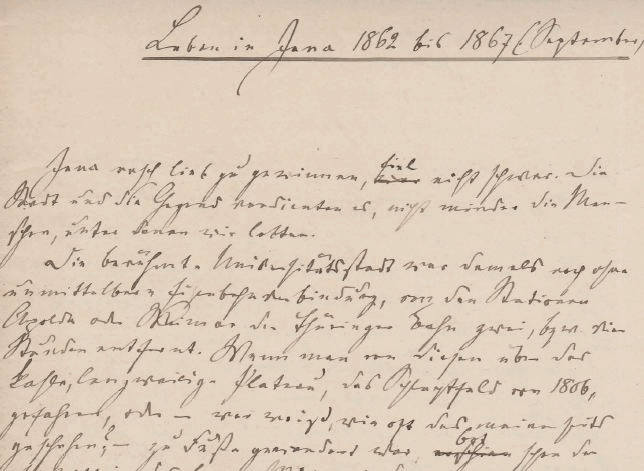 Leben in Jena 1862 bis 1867 (September)
Jena rasch lieb zu gewinnen, fiel nicht schwer. Die
Stadt und die Gegend verdienten es, nicht minder die Men-
schen, unter denen wir lebten.
Die berühmte Universitätsstadt war damals noch ohne
unmittelbare Eisenbahnverbindung, von den Stationen
Apolda oder Weimar der Thüringer Bahn zwei, bzw. vier
Stunden entfernt. Wenn man von diesen über das
kahle, langweilige Plateau, das Schlachtfeld von 1806,
gefahren, oder – wer weiß, wie oft das meiner seits
geschehen? – zu Fuße gewandert war, bot schon der